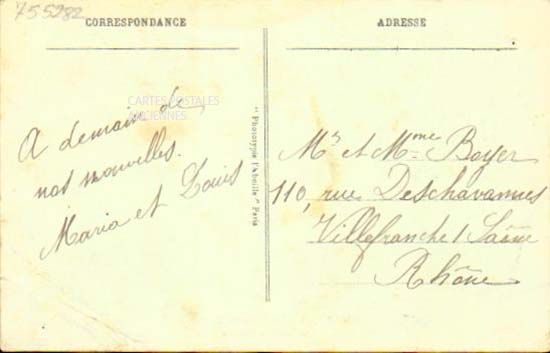 755282
CORRESPONDANCE
ADRESSE
CARTES POSTALES
ANCIENNES
A demain de
nos nouvelles.
Maria et Louis
" Phototypie l'Abeille " Paris
Mr et Mme Boyer
110, rue Deschavannes
Villefranche / Saône
Rhône